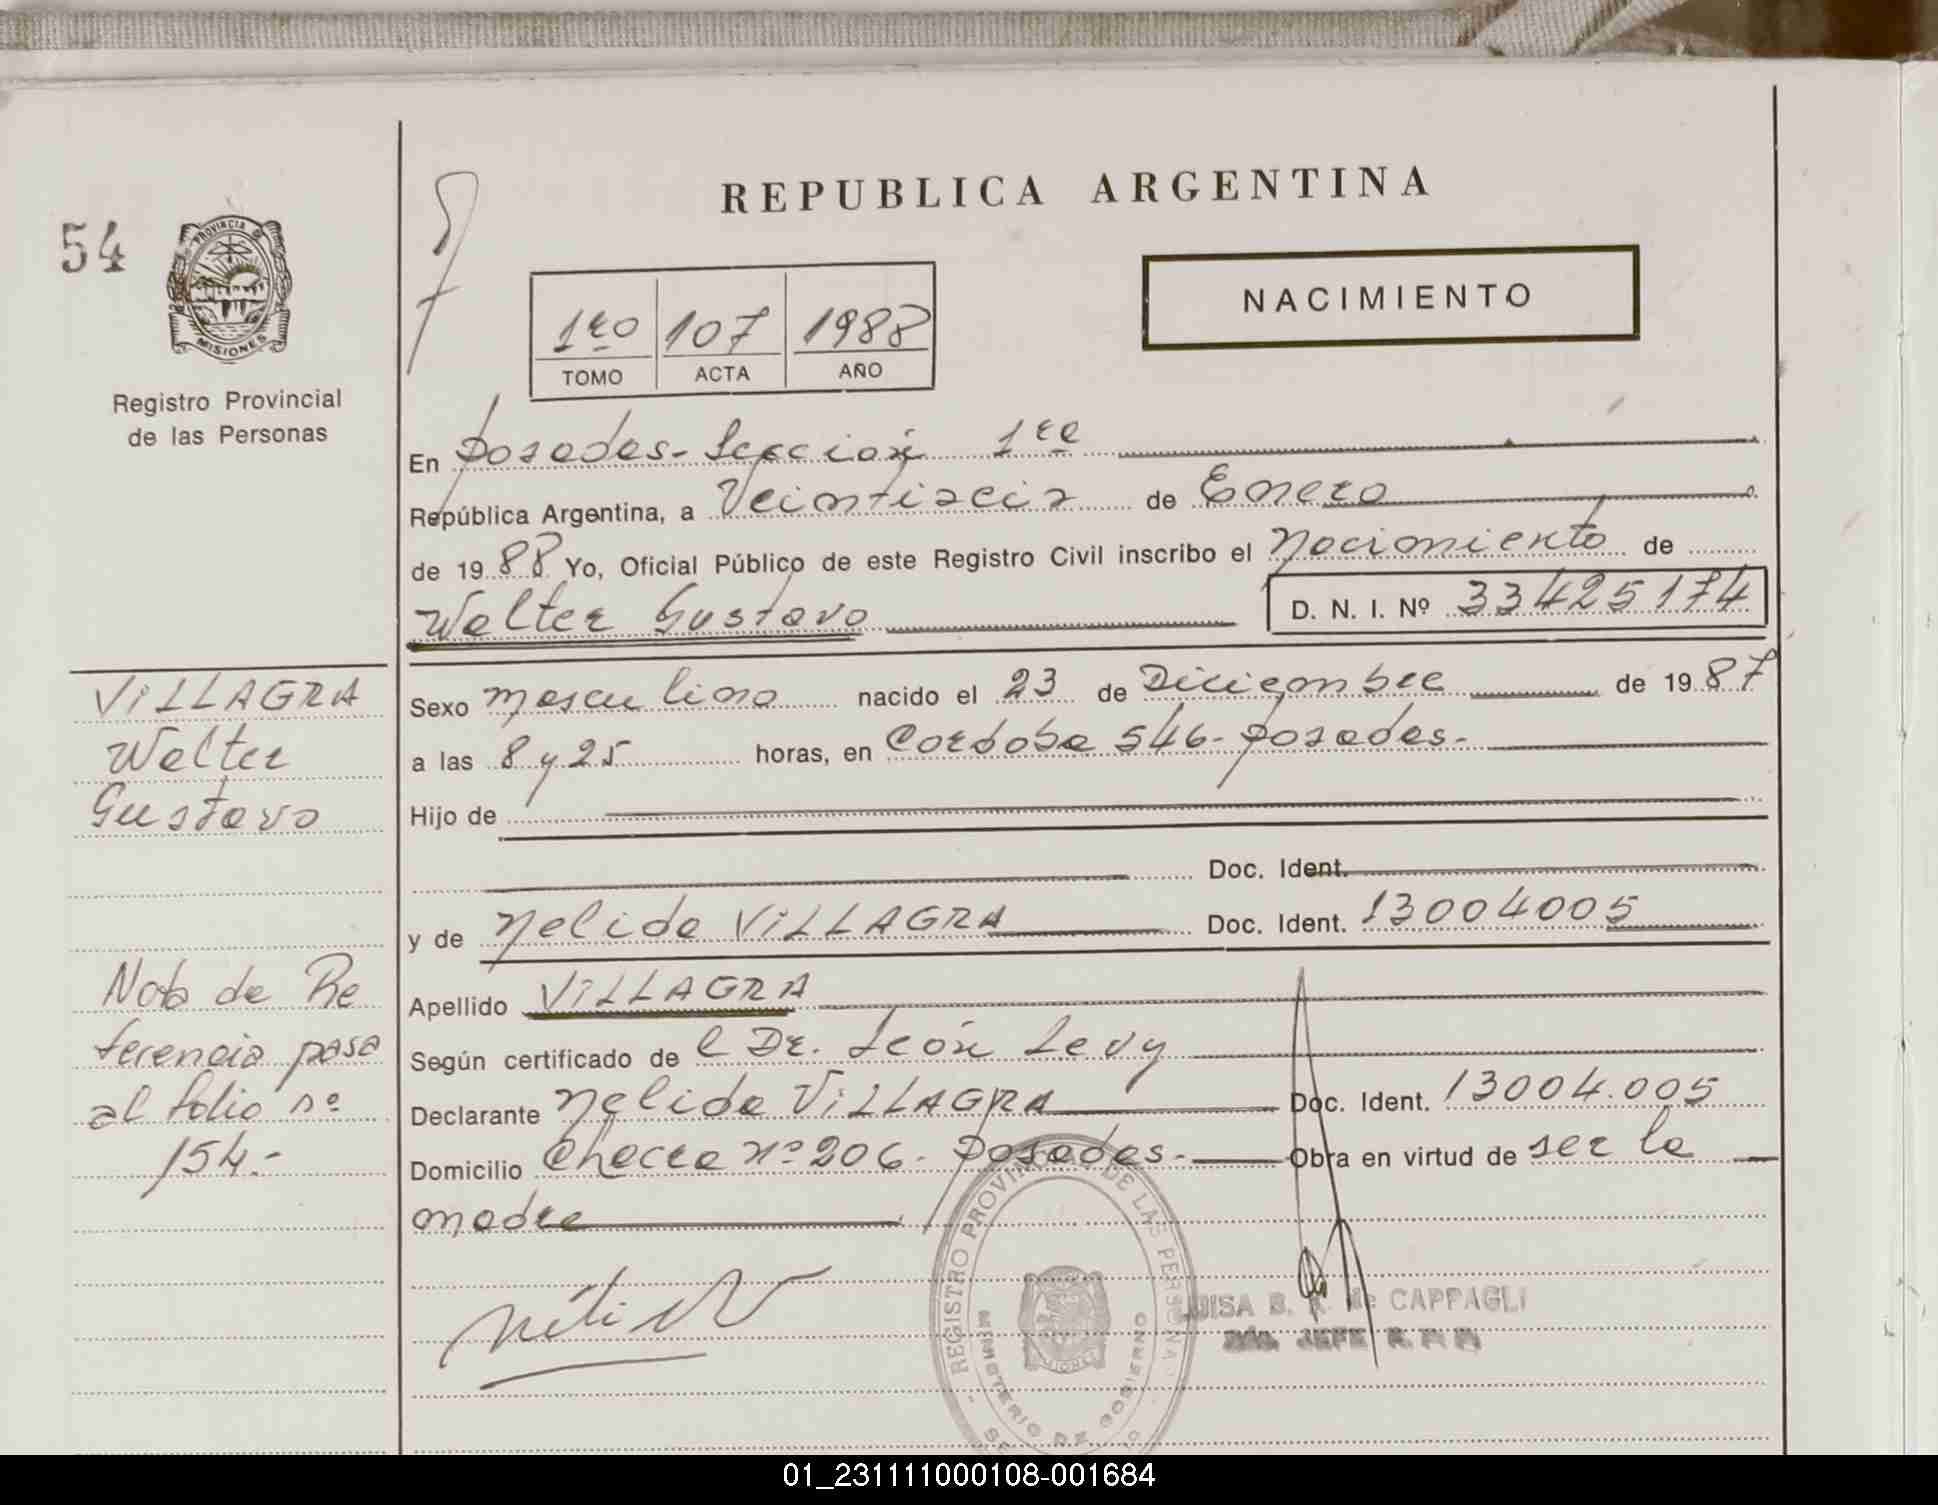 REPUBLICA ARGENTINA
54
PROVINCIA DE
MISIONES
Registro Provincial
de las Personas
NACIMIENTO
1ro 107 1988
TOMO ACTA AÑO
En Posadas - Sección 1ra
República Argentina, a Veintiseis de Enero
de 1988 Yo, Oficial Público de este Registro Civil inscribo el Nacimiento de
Walter Gustavo D. N. I. Nº 33425174
VILLAGRA
Walter
Gustavo
Sexo Masculino nacido el 23 de Diciembre de 1987
a las 8 y 25 horas, en Cordoba 546 - Posadas -
Hijo de
Doc. Ident.
y de Nelida VILLAGRA Doc. Ident. 13004005
Apellido VILLAGRA
Según certificado de l Dr. León Levy
Declarante Nelida VILLAGRA Doc. Ident. 13004.005
Domicilio Chacra nº 206 - Posadas - Obra en virtud de ser la
madre
Nota de Re
ferencia pasa
al folio nº
154.-
REGISTRO PROVINCIAL DE LAS PERSONAS
MINISTERIO DE GOBIERNO
LUISA B. de CAPPAGLI
JEFE
01_231111000108-001684